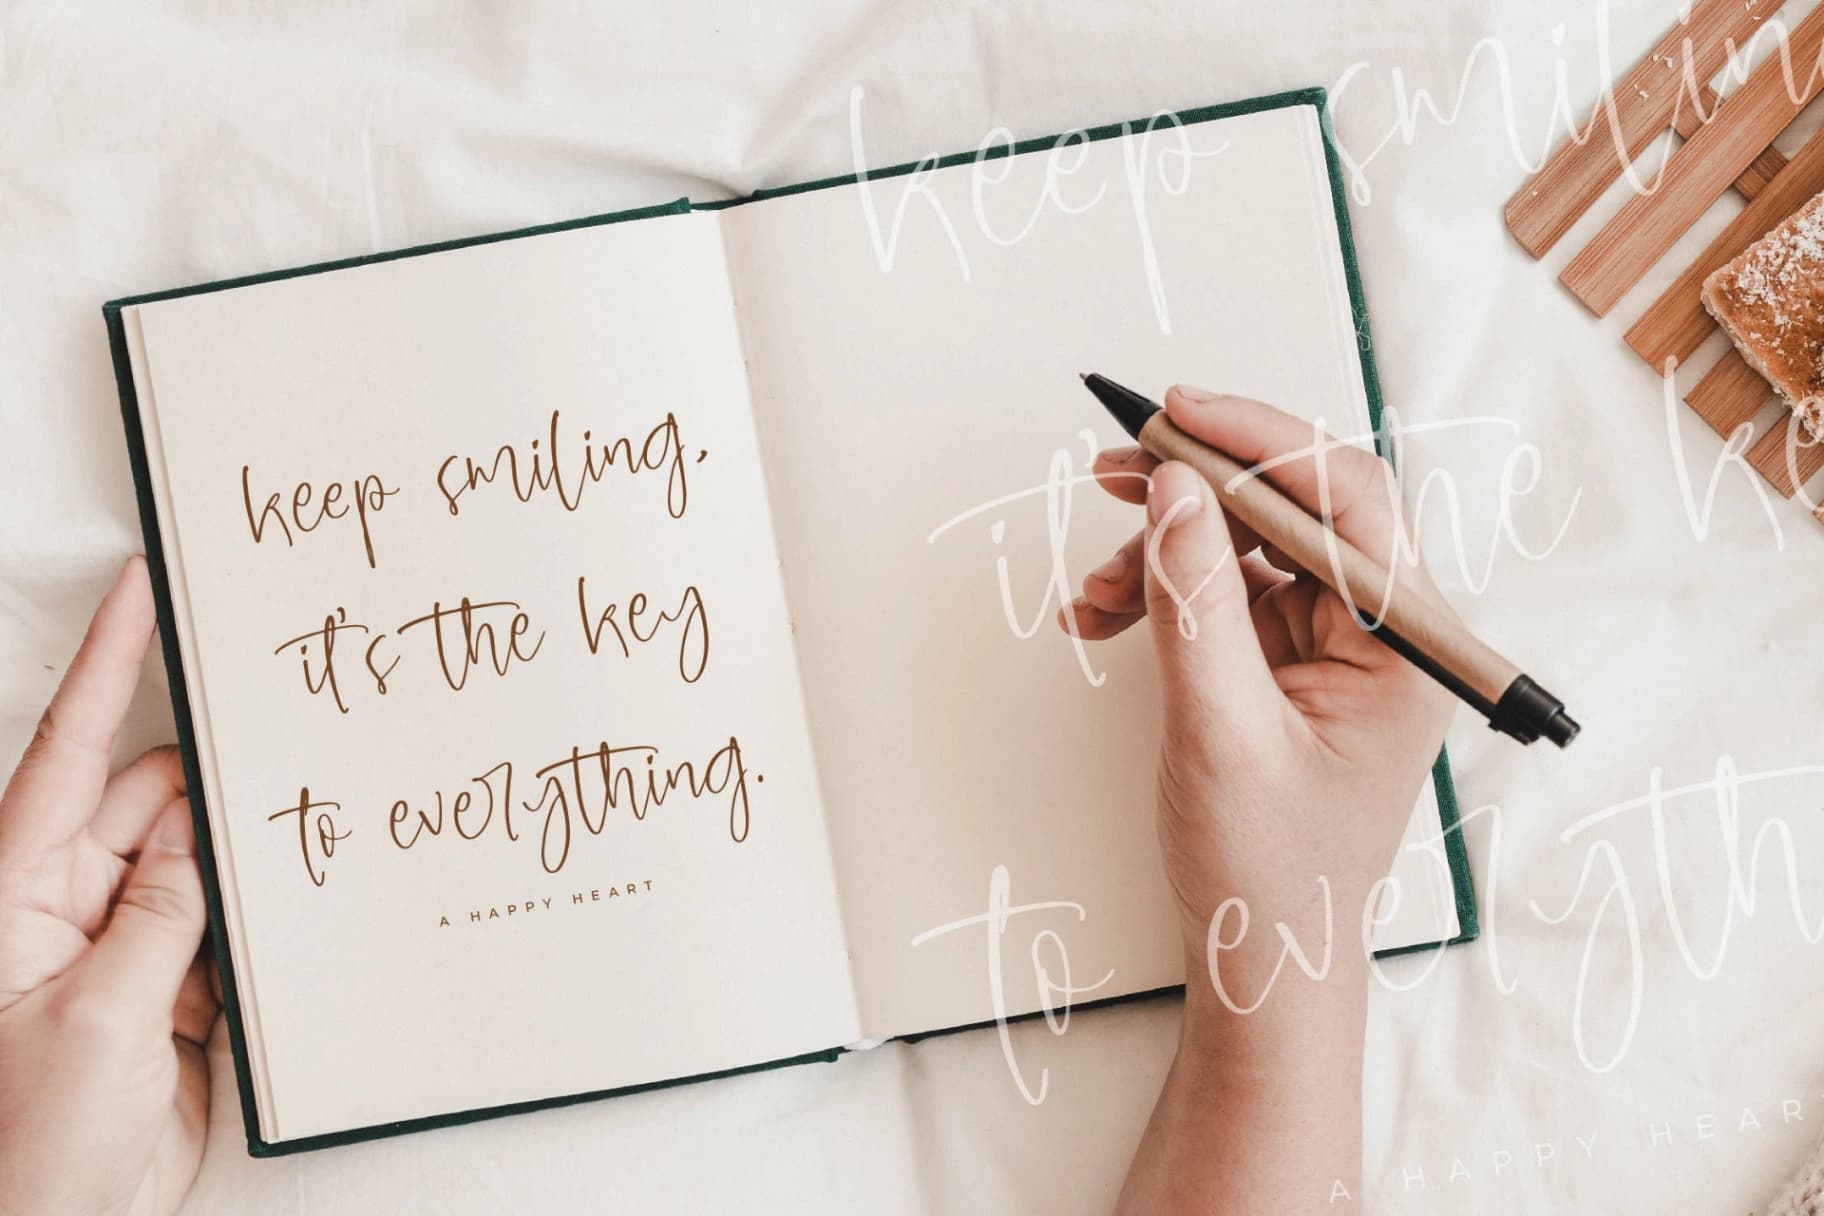 keep smiling,
it's the key
to everything.
A HAPPY HEART
keep smilin
it's the ke
to everyth
A HAPPY HEAR